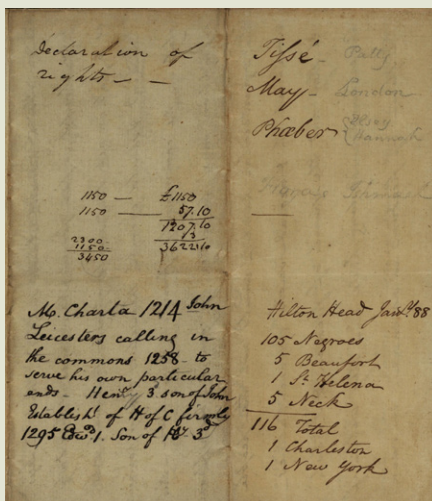 Declaration of
rights —  —
1150 — £1150
1150 — 57.10
1207.10
2300 3
1150. 3622.10
3450
M. Charta 1214 John
Leicesters calling in
the commons 1258 - to
serve his own particular
ends - Henry 3 son of John
Establisht of H of C firmly
1295 Edwd 1. Son of Hy 3d
Tissé - Patty
May - London
Phœber { Elsey
Hannah
Hilton Head Jany 88
105 Negroes
5 Beaufort
1 St Helena
5 Neck
116 Total
1 Charleston
1 New York